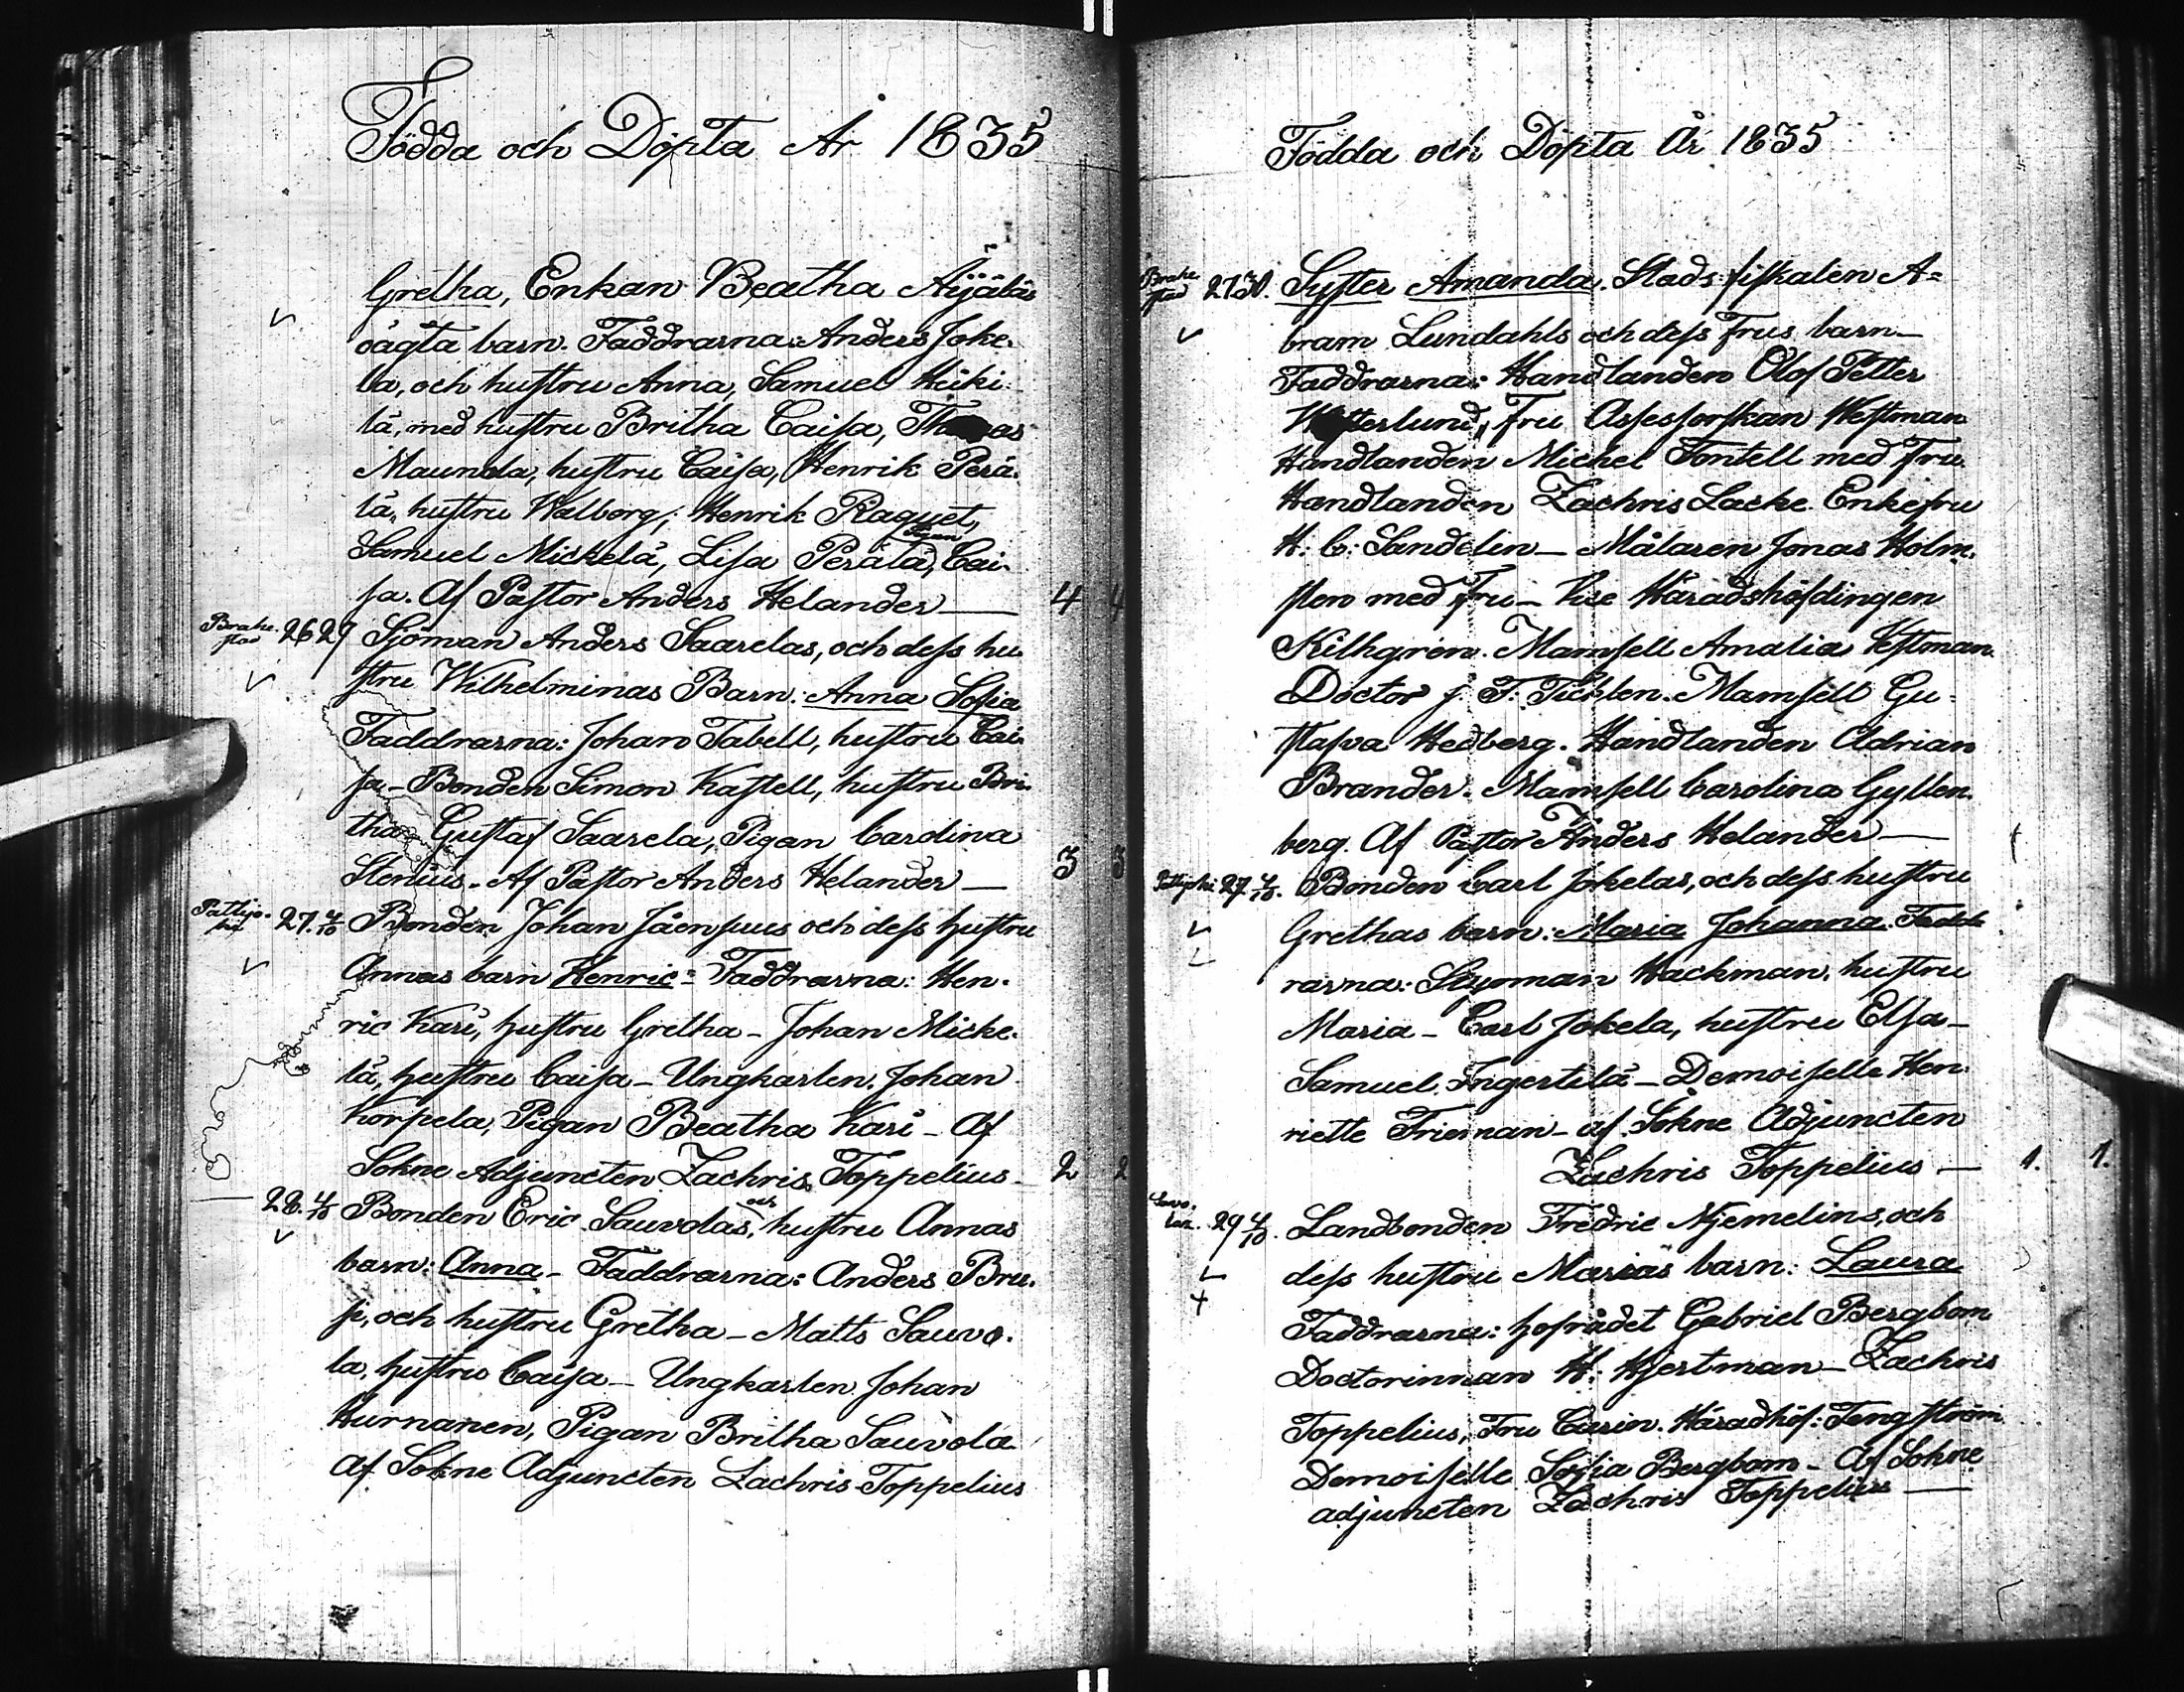 Födda och Döpta År 1835
Gretha, Enkan Beatha Äijäläs
oägta barn. Faddrarna: Anders Joke-
la, och hustru Anna, Samuel Heiki-
lä, med hustru Britha Caisa, Thomas
Maunola, hustru Caisa, Henrik Perä-
lä, hustru Walborg, Henrik Raquet,
Pigan
Samuel Mickelä, Lisa Perälä, Cai-
sa. Af Pastor Anders Helander — 4 4
Brahe-
stad 26 29 Sjöman Anders Saarelas, och dess hu-
stru Wilhelminas Barn: Anna Sofia
Faddrarna: Johan Tabell, hustru Cai-
sa – Bonden Simon Kastell, hustru Bri-
tha – Gustaf Saarela, Pigan Carolina
Stenius. Af Pastor Anders Helander — 3 3
Pattijo-
ki 27. 4/10 Bonden Johan Jåensuus och dess hustru
Annas barn Henric: Faddrarna: Hen-
ric Kari, hustru Gretha – Johan Micke-
lä, hustru Caisa – Ungkarlen Johan
Korpela, Pigan Beatha Kari – Af
Sokne Adjuncten Zachris Toppelius – 2 2
och
28. 4/10 Bonden Eric Sauvolas, hustru Annas
barn: Anna – Faddrarna: Anders Bru-
si, och hustru Gretha – Matts Sauvo-
la, hustru Caisa – Ungkarlen Johan
Hurnanen, Pigan Britha Sauvola
Af Sokne Adjuncten Zachris Toppelius
Födda och Döpta År 1835
Brahe
stad 27 30. Syster Amanda. Stads-fiskalen A-
bram Lundahls och dess Frus barn –
Faddrarna: Handlanden Olof Petter
Westerlund, Fru Assessorskan Westman
Handlanden Michel Fontell med Fru
Handlanden Zachris Lacke. Enkefru
H: C: Sandelin – Målaren Jonas Holm-
sten med Fru – Vise Häradshöfdingen
Kilhgren. Mamsell Amalia Vestman.
Doctor J. F. Ticklen. Mamsell Gu-
stafva Hedberg. Handlanden Adrian
Brander. Mamsell Carolina Gyllen-
berg. Af Pastor Anders Helander —
Pattijoki 27. 4/10. Bonden Carl Jokelas, och dess hustru
Grethas barn: Maria Johanna. Fadd-
rarna: Styrman Hackman, hustru
Maria – Carl Jokela, hustru Elsa –
Samuel Ingertilä – Demoiselle Hen-
riette Frieman – af Sokne Adjuncten
Zachris Toppelius — 1. 1.
Savo-
lax. 29 4/10. Landbonden Fredric Njemelins, och
dess hustru Marias barn: Laura
Faddrarna: hofrådet Gabriel Bergbom
Doctorinnan H. Hjertman – Zachris
Toppelius, Fru Häradhöf: Tengström
Demoiselle Sofia Bergbom – Af Sokne
adjuncten Zachris Toppelius —